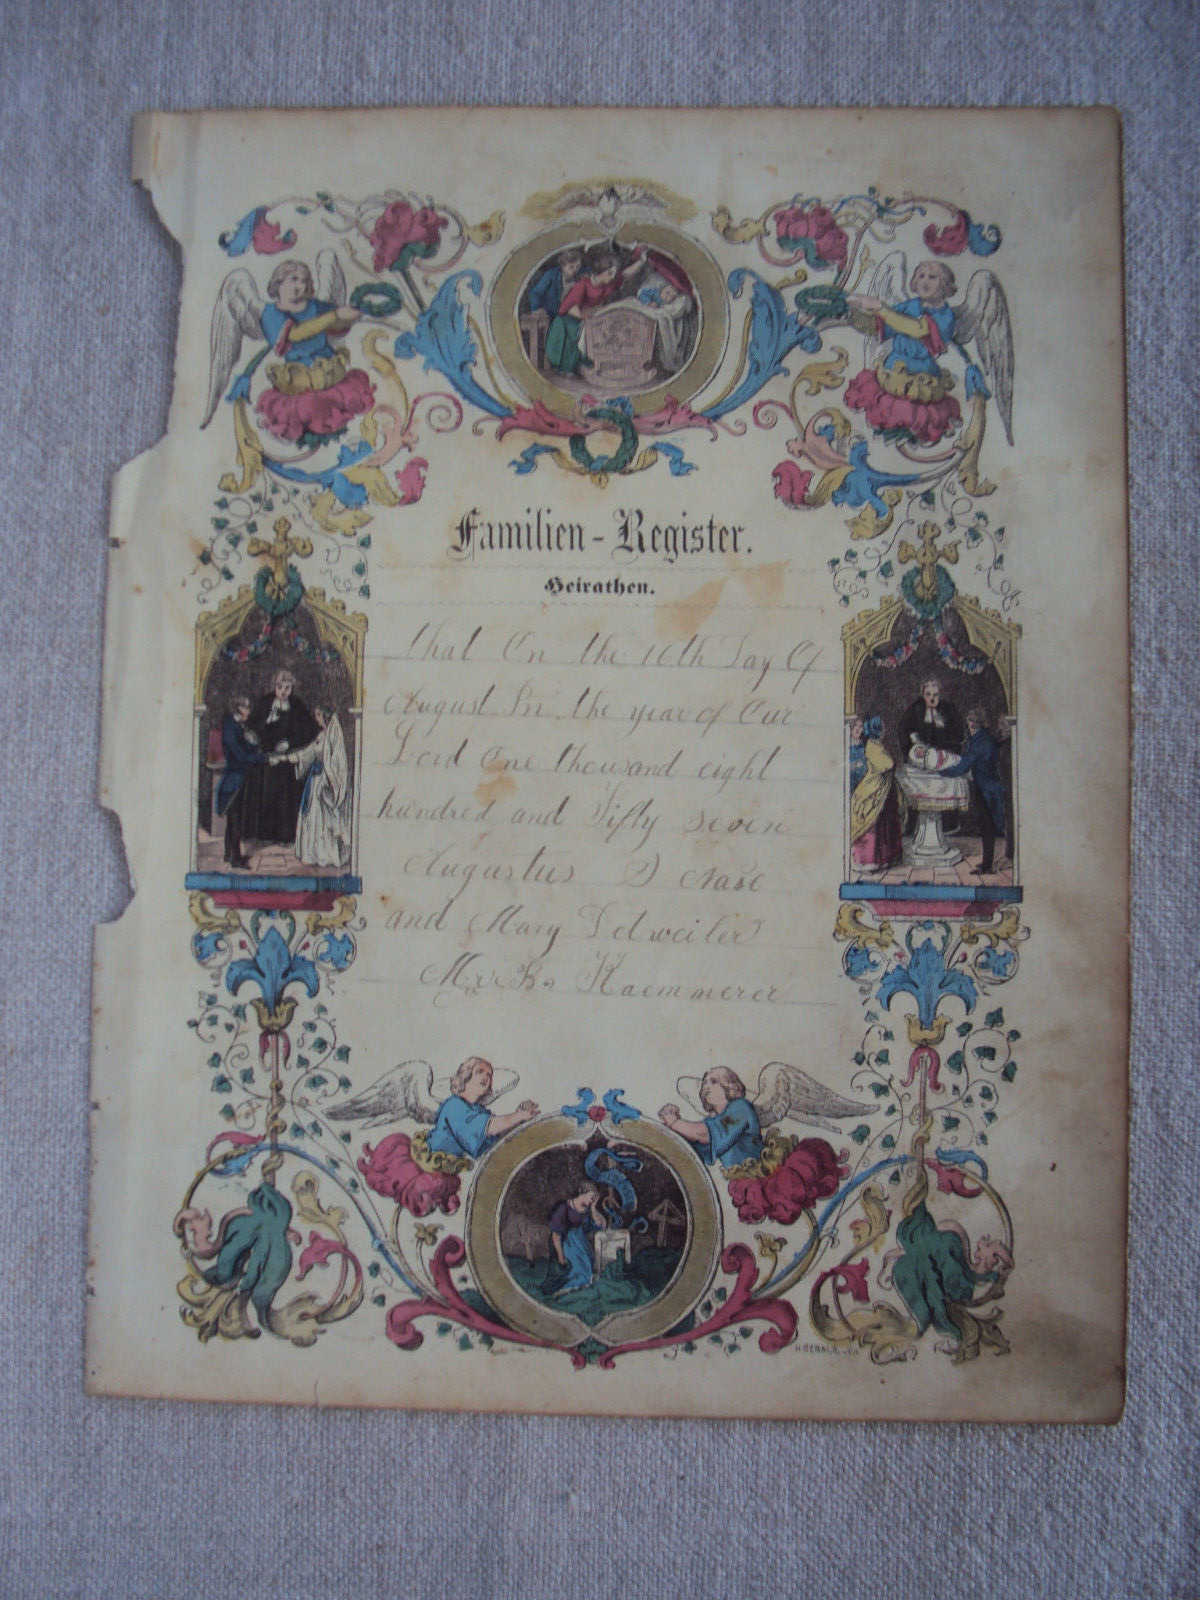 Familien-Register.
Heirathen.
that On the 16th Day Of
August In the year of Our
Lord One thousand eight
hundred and Fifty seven
Augustus
and Mary Detweiler
Kaemmerer